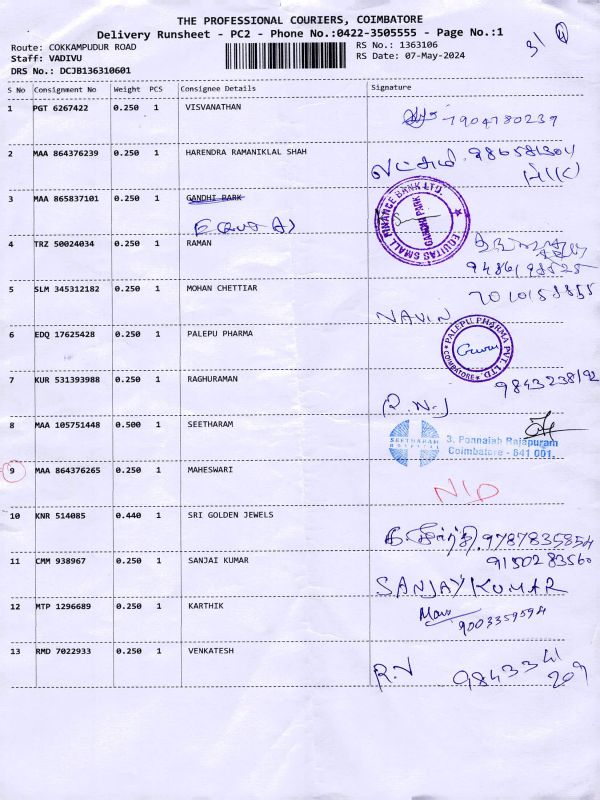 THE PROFESSIONAL COURIERS, COIMBATORE
Delivery Runsheet - PC2 - Phone No.:0422-3505555 - Page No.:1
Route: COKKAMPUDUR ROAD RS No.: 1363106
Staff: VADIVU RS Date: 07-May-2024
DRS No.: DCJB136310601
S No Consignment No Weight PCS Consignee Details Signature
1 PGT 6267422 0.250 1 VISVANATHAN
7904780239
2 MAA 864376239 0.250 1 HARENDRA RAMANIKLAL SHAH
3 MAA 865837101 0.250 1 GANDHI PARK
EQUITAS SMALL FINANCE BANK LTD.
GANDHI PARK
4 TRZ 50024034 0.250 1 RAMAN
5 SLM 345312182 0.250 1 MOHAN CHETTIAR
NAVIN
6 EDQ 17625428 0.250 1 PALEPU PHARMA
PALEPU PHARMA PVT. LTD
COIMBATORE
7 KUR 531393988 0.250 1 RAGHURAMAN
9843238192
8 MAA 105751448 0.500 1 SEETHARAM
SEETHARAM HOSPITAL
3. Ponnaiah Rajapuram
Coimbatore - 641 001.
9 MAA 864376265 0.250 1 MAHESWARI
N/D
10 KNR 514085 0.440 1 SRI GOLDEN JEWELS
9787835854
11 CMM 938967 0.250 1 SANJAI KUMAR
9150283560
SANJAY KUMAR
12 MTP 1296689 0.250 1 KARTHIK
9003359594
13 RMD 7022933 0.250 1 VENKATESH
R.V 9843341
209